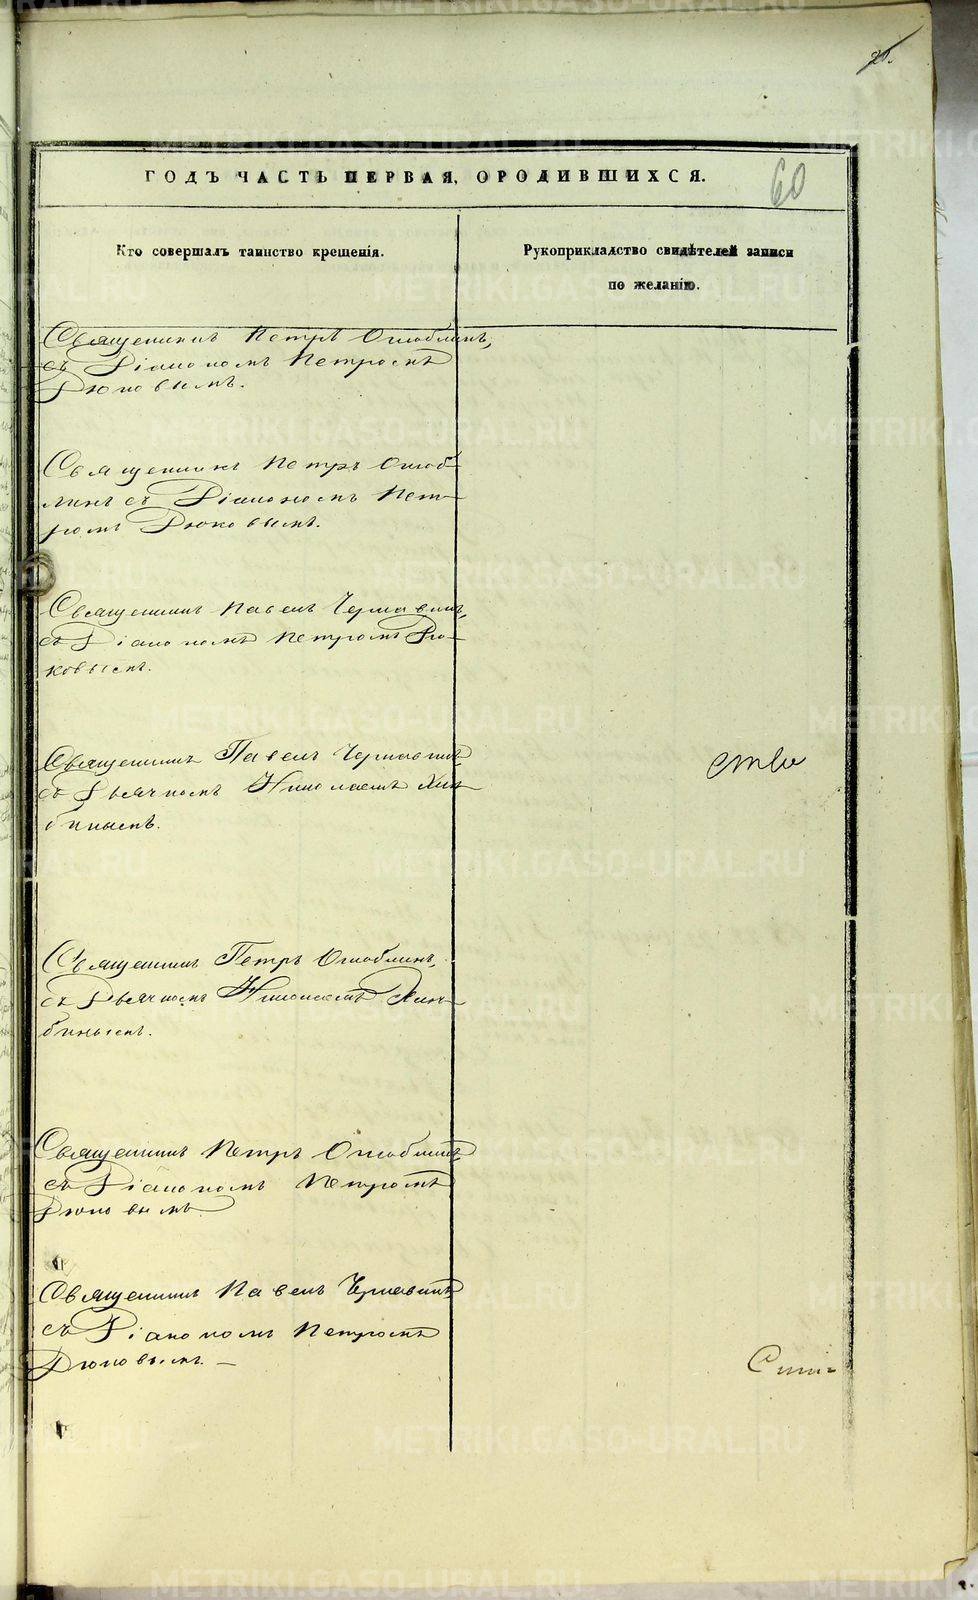 60
ГОДЪ ЧАСТЬ ПЕРВАЯ, О РОДИВШИХСЯ.
Кто совершалъ таинство крещенія.
Рукоприкладство свидѣтелей записи
по желанію.
Священникъ Петръ Оглоблинъ,
съ Діакономъ Петромъ
Дюковымъ.
Священникъ Петръ Оглоб-
линъ съ Діакономъ Пет-
ромъ Дюковымъ.
Священникъ Павелъ Чернавинъ,
съ Діакономъ Петромъ Дю-
ковымъ.
Священникъ Павелъ Чернавинъ
съ Дьячкомъ Николаемъ Хлы-
бинымъ.
Священникъ Петръ Оглоблинъ,
съ Дьячкомъ Николаемъ
бинымъ.
Священникъ Петръ Оглоблинъ
съ Діакономъ Петромъ
Дюковымъ
Священникъ Павелъ Чернавинъ
съ Діакономъ Петромъ
Дюковымъ. —
METRIKI.GASO-URAL.RU